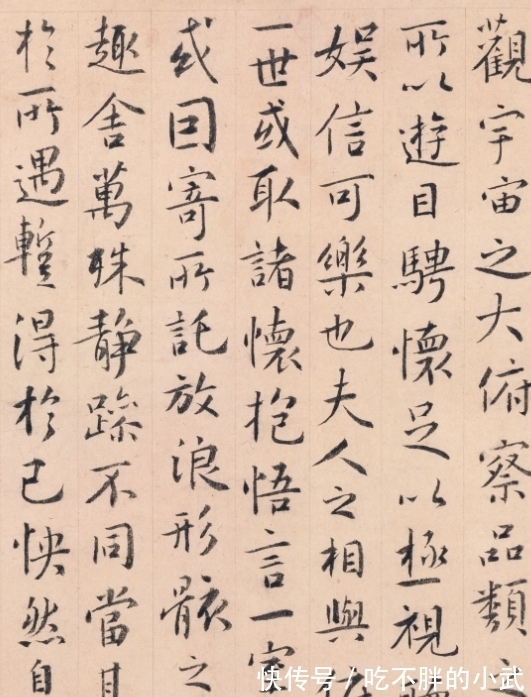 觀宇宙之大俯察品類
所以遊目騁懷足以極視聽
娛信可樂也夫人之相與
一世或取諸懷抱悟言一室
或因寄所託放浪形骸之
趣舍萬殊静躁不同當其
於所遇蹔得於己怏然自
快传号/吃不胖的小武